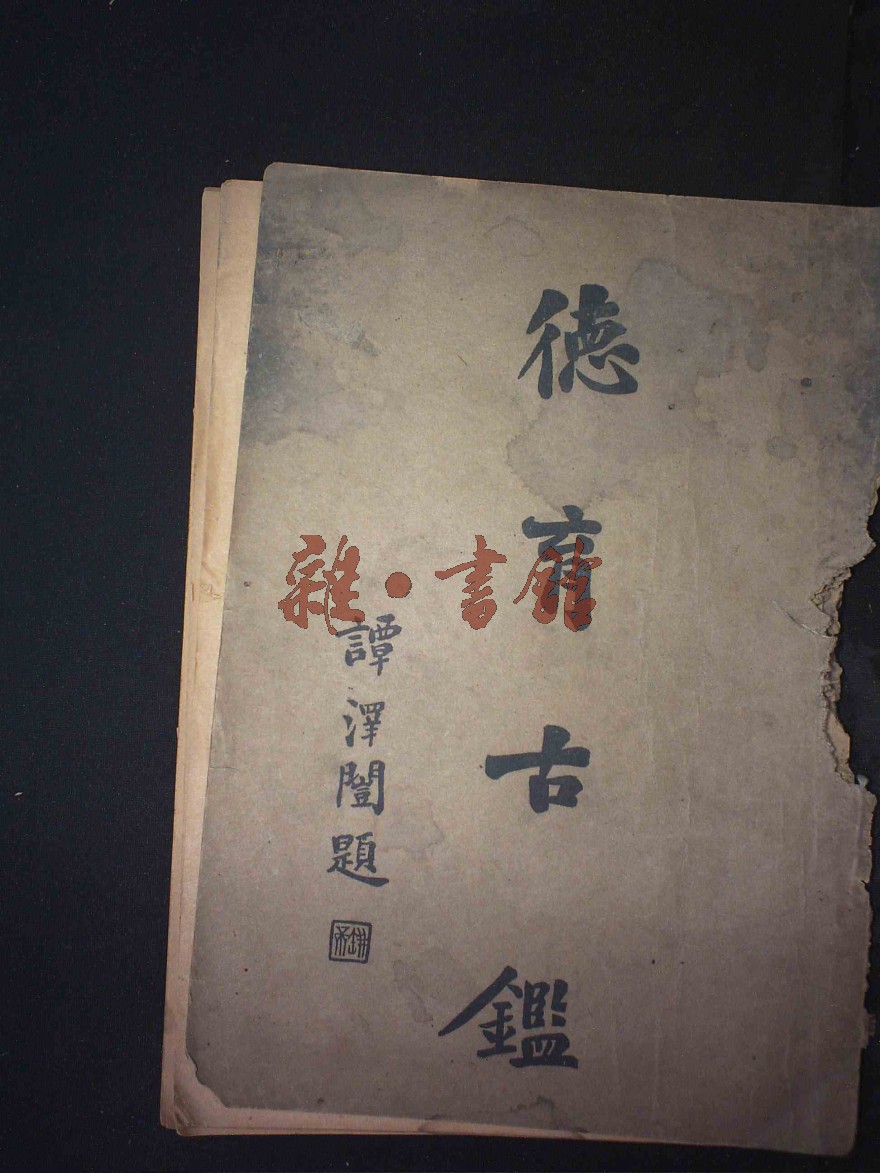 德育古鑑
譚澤闓題
雜·書館